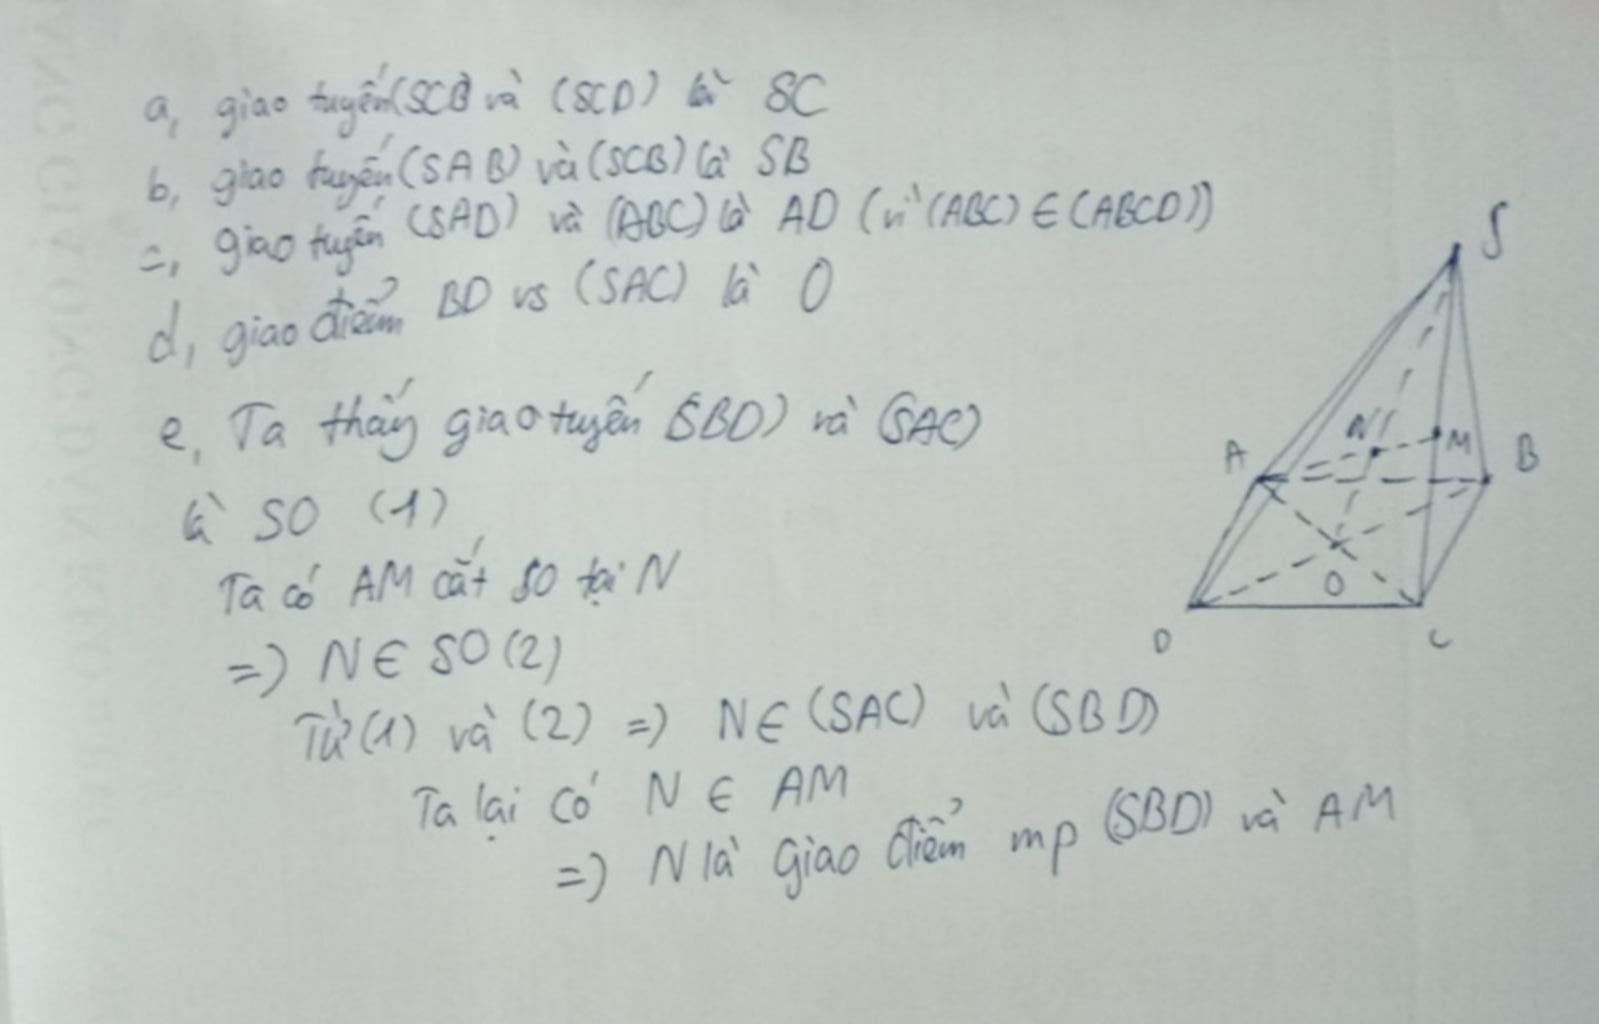 a, giao tuyến (SCB và (SCD) là SC
b, giao tuyến (SAB) và (SCB) là SB
c, giao tuyến (SAD) và (ABC) là AD (vì (ABC) ∈ (ABCD))
d, giao điểm BD vs (SAC) là O
e, Ta thấy giao tuyến (SBD) và (SAC)
là SO (1)
Ta có AM cắt SO tại N
=) N ∈ SO (2)
Từ (1) và (2) =) N ∈ (SAC) và (SBD)
Ta lại có N ∈ AM
=) N là giao điểm mp (SBD) và AM
S
A N M B
O
D C